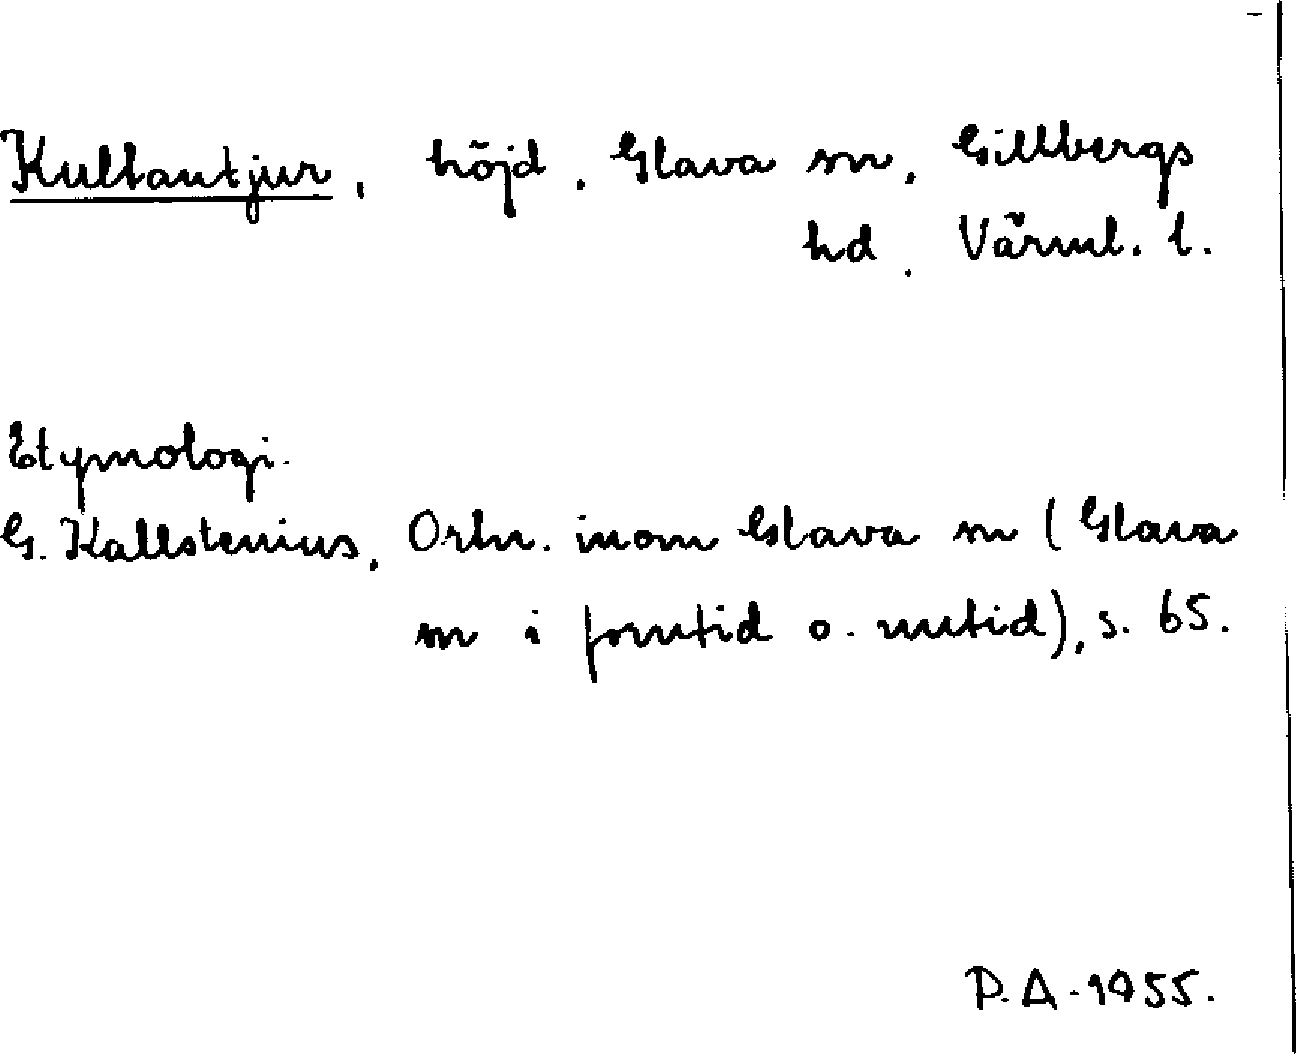 Kultantjur, höjd, Glava sn, Gillbergs
hd, Värml. l.
Etymologi.
G. Kallstenius, Ortn. inom Glava sn (Glava
sn i forntid o. nutid), s. 65.
P.A. 1955.